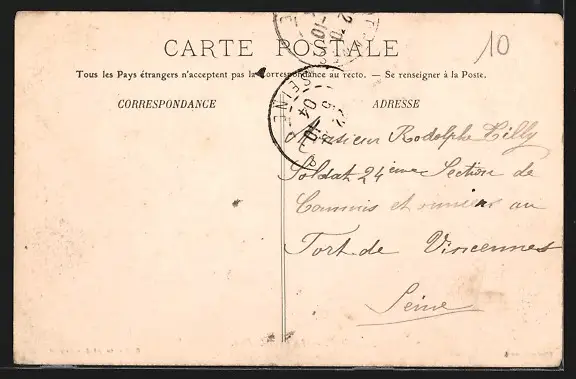 CARTE POSTALE
10
Tous les Pays étrangers n'acceptent pas la Correspondance au recto. — Se renseigner à la Poste.
CORRESPONDANCE
ADRESSE
SEINE
04
Monsieur Rodolphe Tilly
Soldat 24ème Section de
Commis et ouvriers au
Fort de Vincennes
Seine